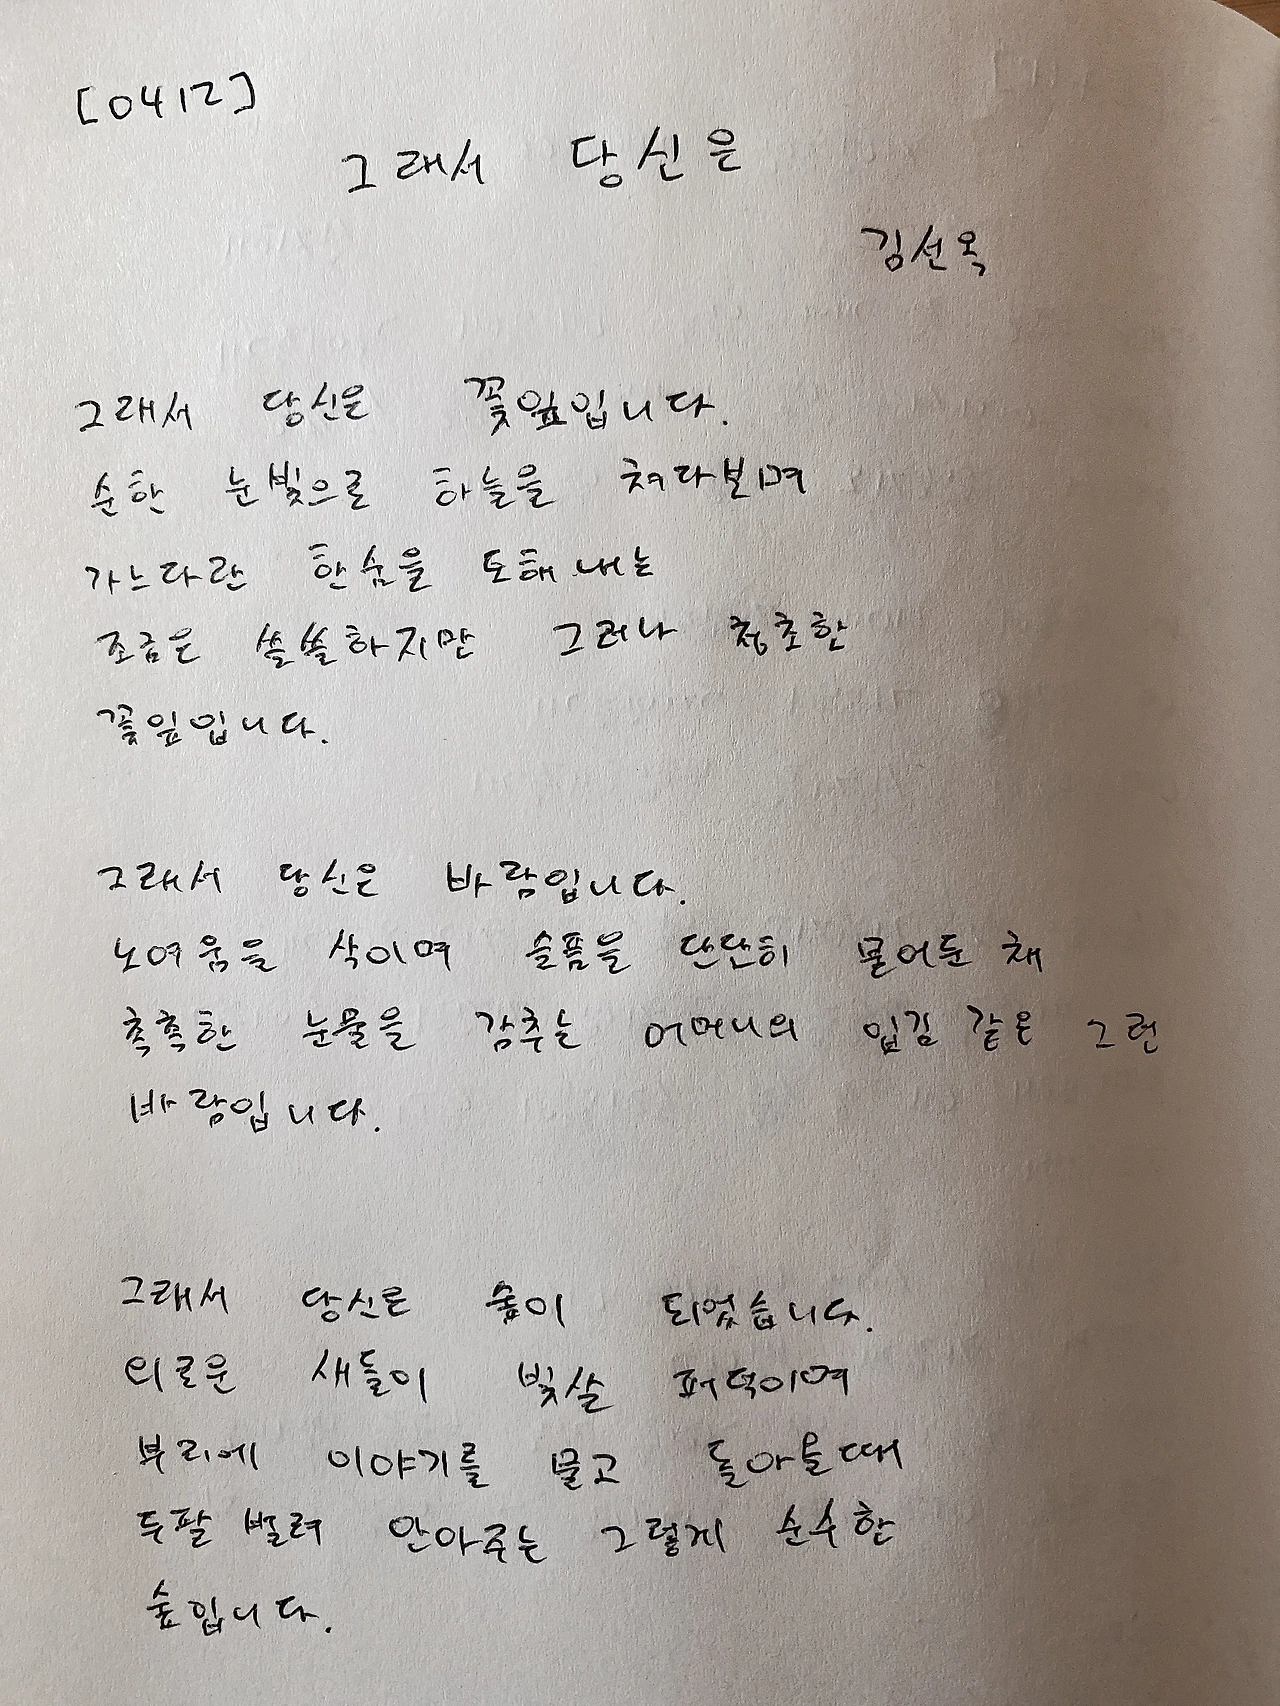 [0412]
그래서 당신은
김선옥
그래서 당신은 꽃잎입니다.
순한 눈빛으로 하늘을 쳐다보며
가느다란 한숨을 토해내는
조금은 쓸쓸하지만 그러나 청초한
꽃잎입니다.
그래서 당신은 바람입니다.
노여움을 삭이며 슬픔을 단단히 물어둔 채
촉촉한 눈물을 감추는 어머니의 입김 같은 그런
바람입니다.
그래서 당신은 숲이 되었습니다.
외로운 새들이 빛살 퍼덕이며
부리에 이야기를 물고 돌아올때
두팔 벌려 안아주는 그렇게 순수한
숲입니다.